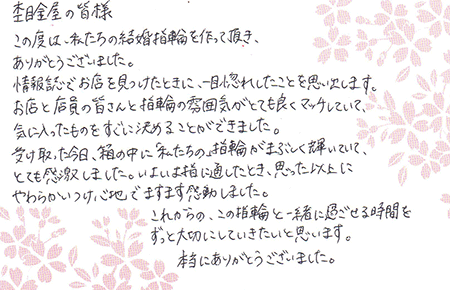 杢目金屋の皆様
この度は、私たちの結婚指輪を作って頂き、
ありがとうございました。
情報誌でお店を見つけたときに、一目惚れしたことを思い出します。
お店と店員の皆さんと指輪の雰囲気がとても良くマッチしていて、
気に入ったものをすぐに決めることができました。
受け取った今日、箱の中に「私たちの」指輪がまぶしく輝いていて、
とても感激しました。いよいよ指に通したとき、思った以上に
やわらかいつけ心地でますます感動しました。
これからの、この指輪と一緒に過ごせる時間を
ずっと大切にしていきたいと思います。
本当にありがとうございました。